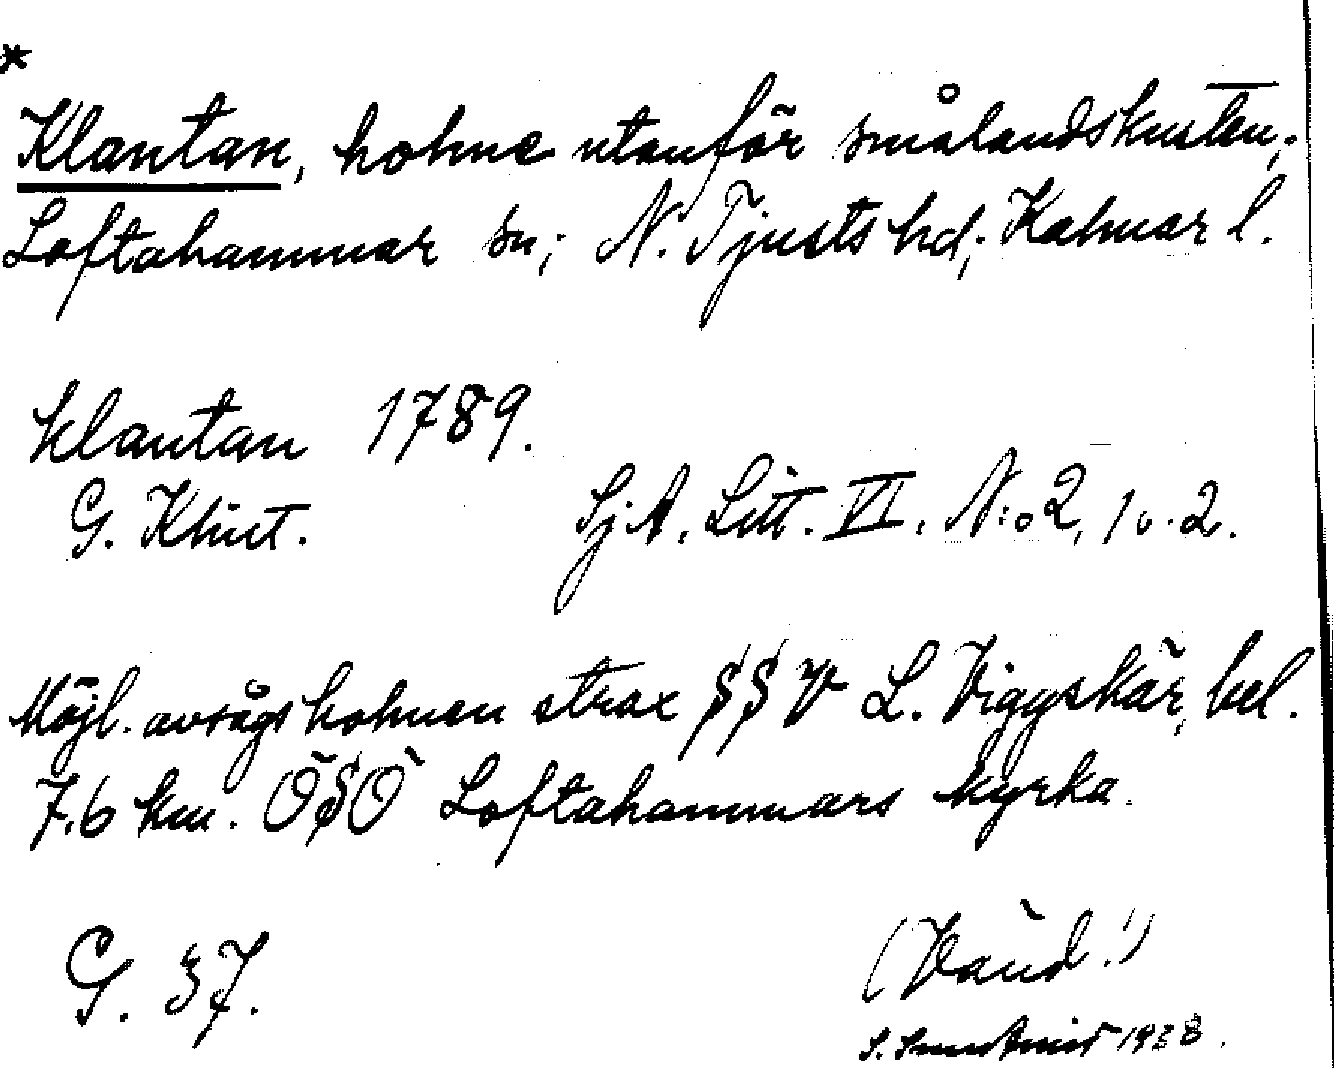 *
Klantan, holme utanför smålandskusten;
Loftahammar sn; N. Tjusts hd; Kalmar l.
Klantan 1789.
G. Klint. Sj.A. Litt. VI. N:o 2, 1 o. 2.
Möjl. avsågs holmen strax SSV L. Viggskär, bel.
7.6 km. ÖSÖ Loftahammars kyrka.
G. 37.
(Vänd!)
S. 1928.